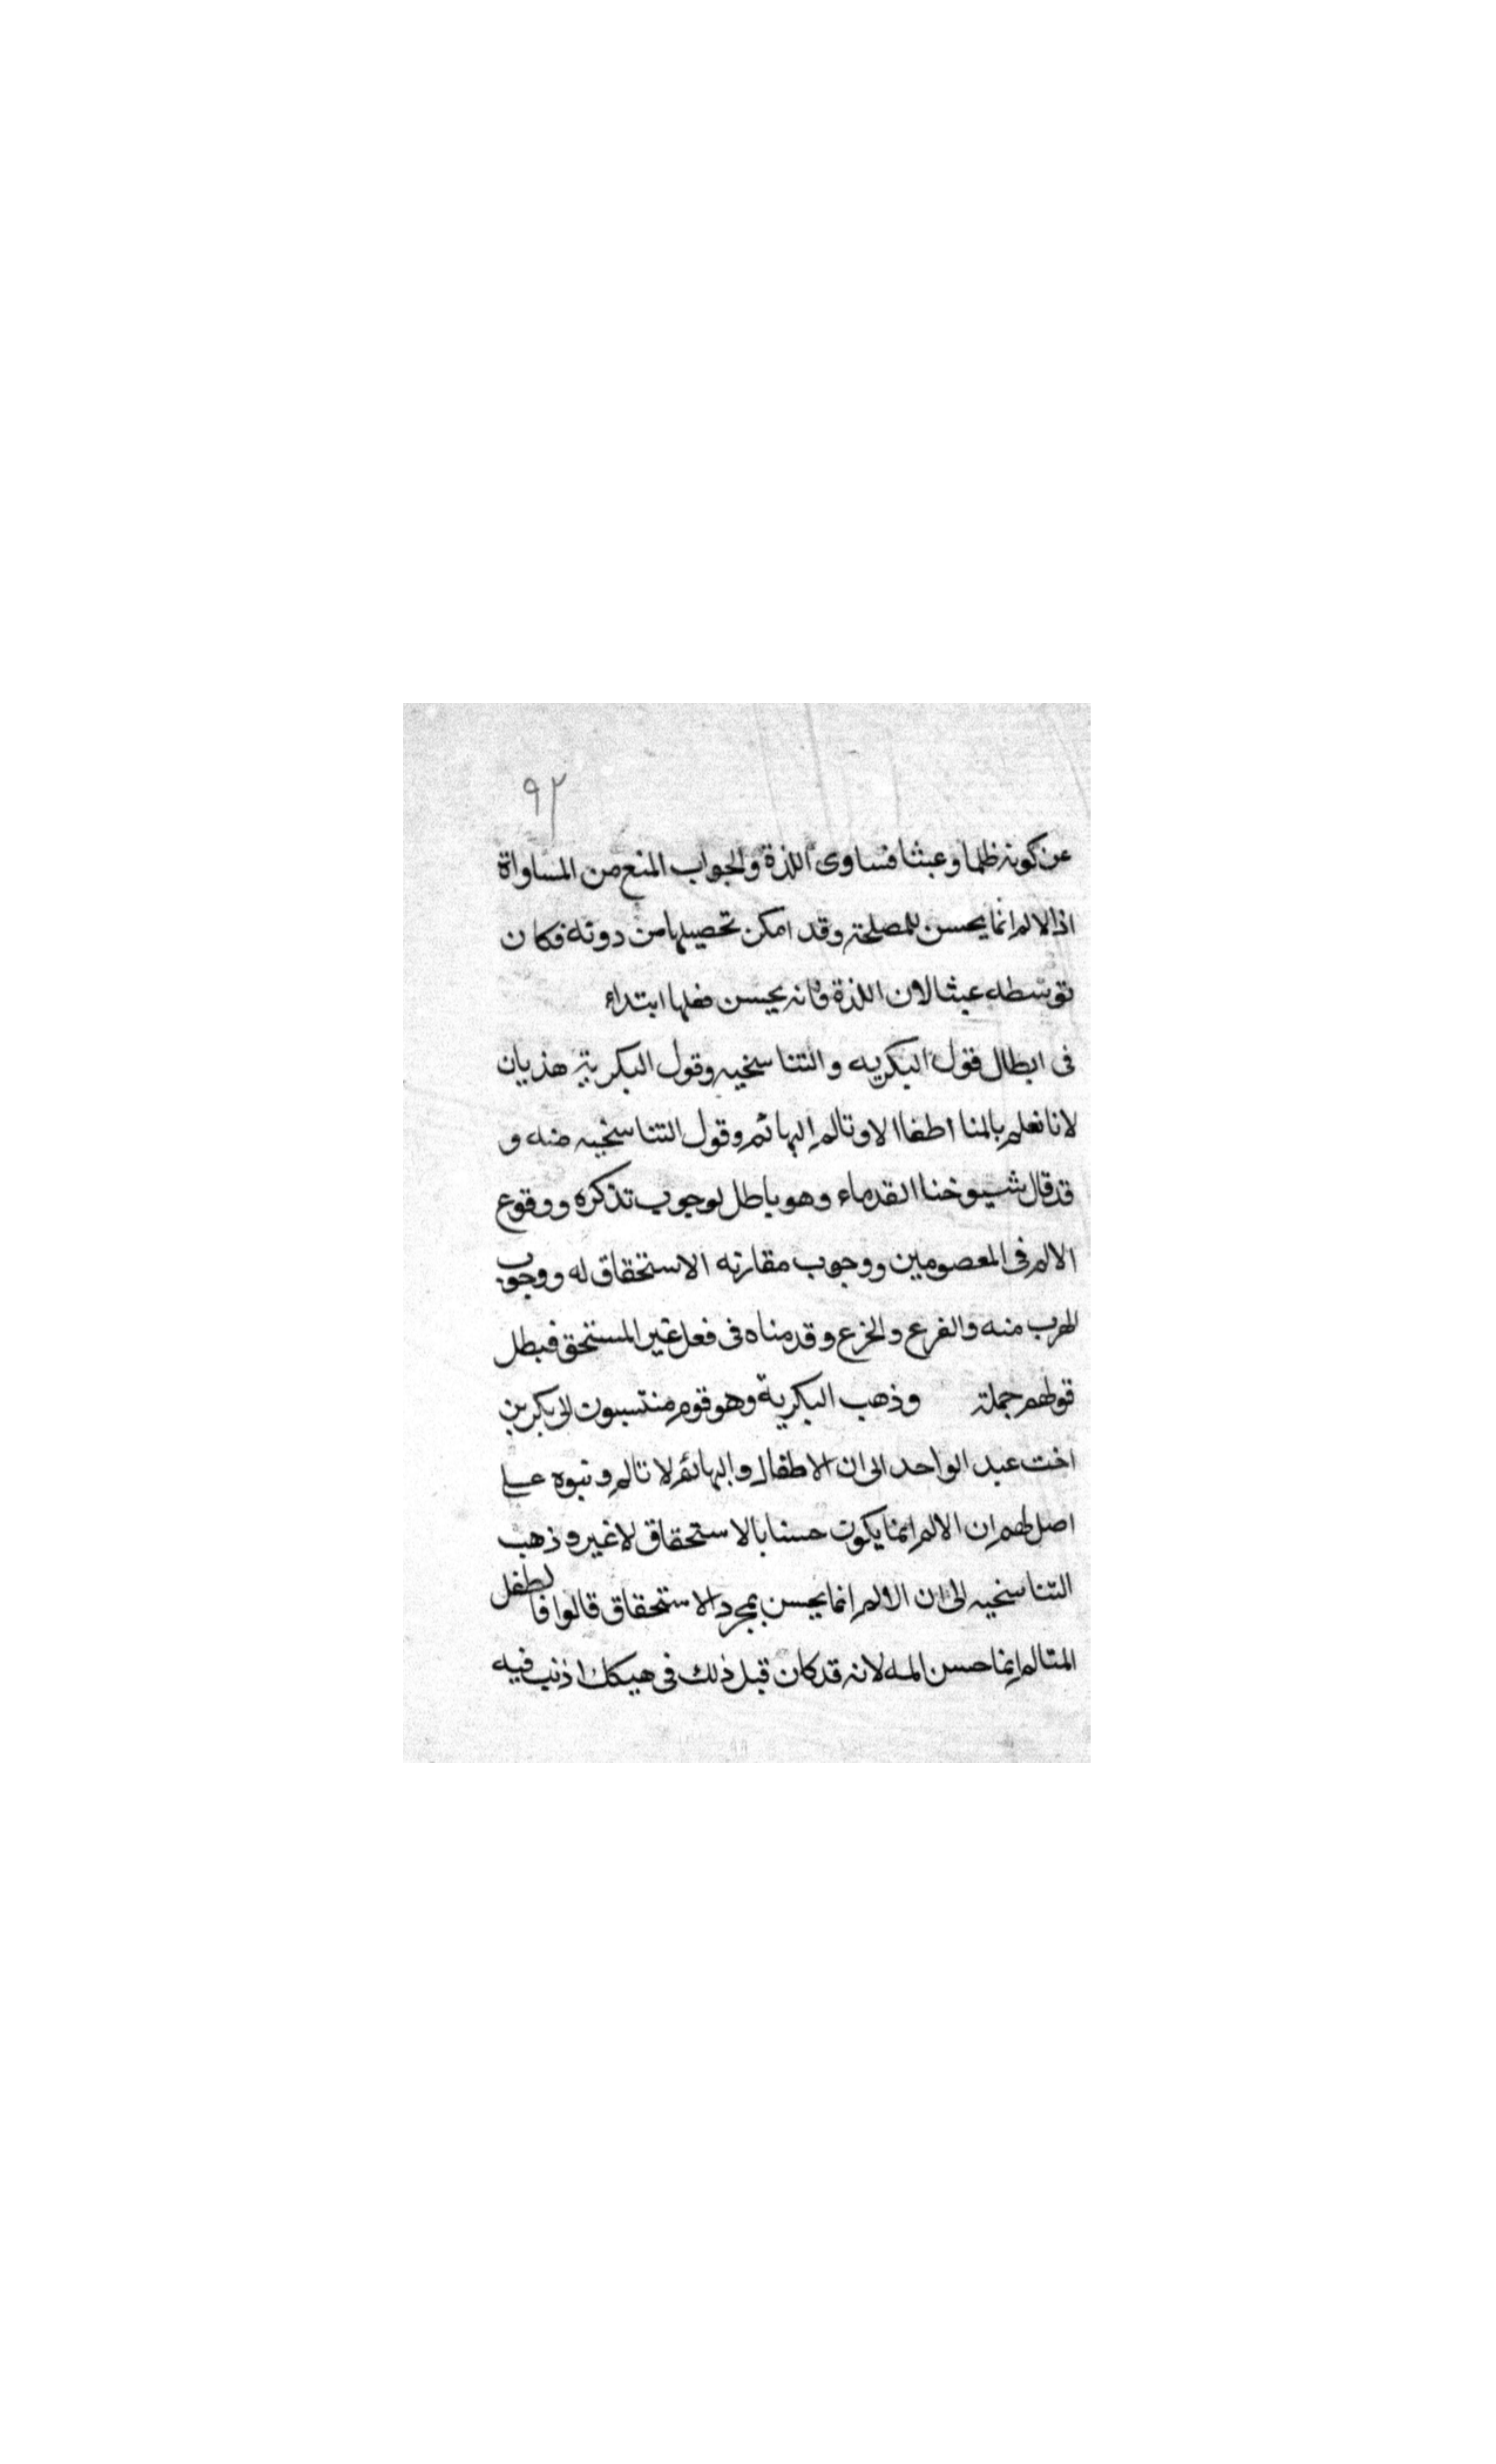 ٩٢
عن كونه ظلما وعبثا فساوى اللذة والجواب المنع من المساواة
اذ الالم انما يحسن للمصلحة وقد امكن تحصيلها من دونه فكان
توسطه عبثا لان اللذة فانه يحسن فعلها ابتداء
فى ابطال قول البكريه والتناسخيه وقول البكرية هذيان
لانا نعلم بالمنا اطفاا لا وتالم البهائم وقول التناسخيه منه و
قد قال شيوخنا القدماء وهو باطل لوجوب تذكره ووقوع
الالم فى المعصومين ووجوب مقارنه الاستحقاق له ووجوب
الهرب منه والفزع والجزع وقد مناه فى فعل غير المستحق فبطل
قولهم جملة وذهب البكرية وهو قوم منتسبون الى بكر بن
اخت عبد الواحد الى ان الاطفال والبهائم لا تالم وبنوه على
اصل لهم ان الالم انما يكون حسنا بالاستحقاق لا غير وذهب
التناسخيه الى ان الالم انما يحسن بمجرد الاستحقاق قالوا فالطفل
المتالم انما حسن المه لانه قد كان قبل ذلك فى هيكل اذنب فيه